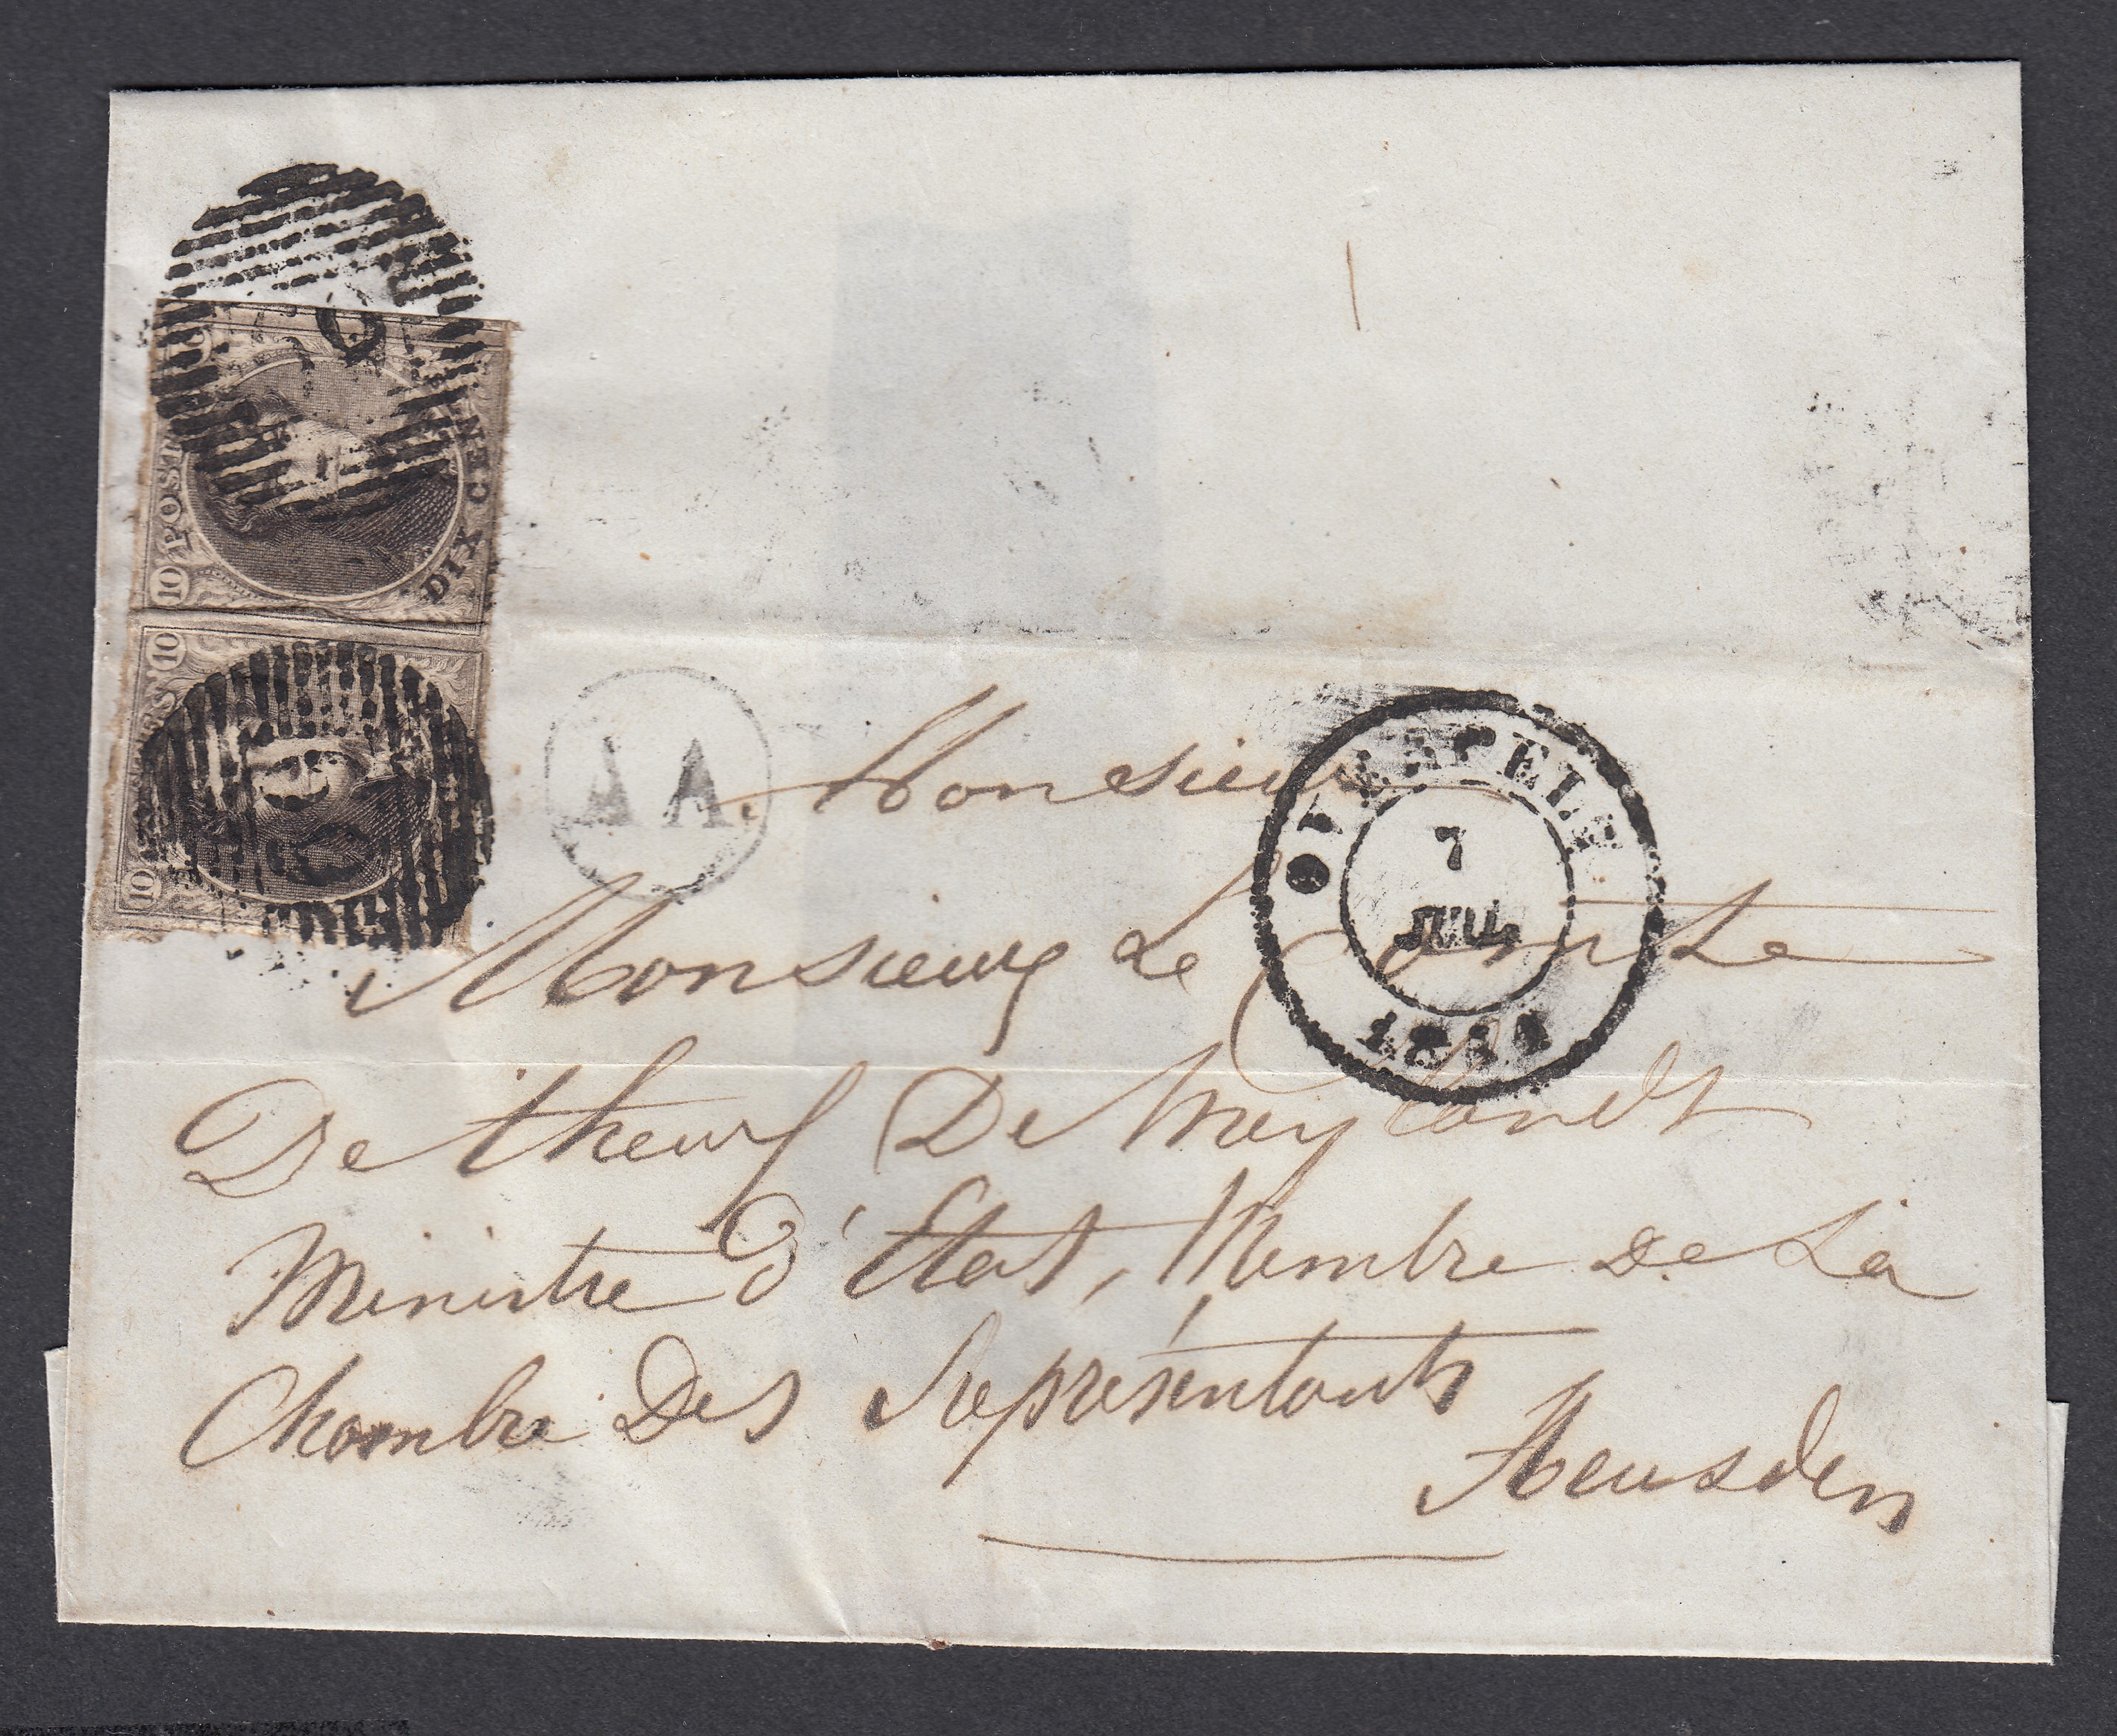 10 POST
DIX CEN
10
10
10
AA.
7
JUIL
Monsieur
Monsieur Le Comte
De theux De Meylandt
Ministre d'État, Membre De La
Chambre Des Représentants
Heusden